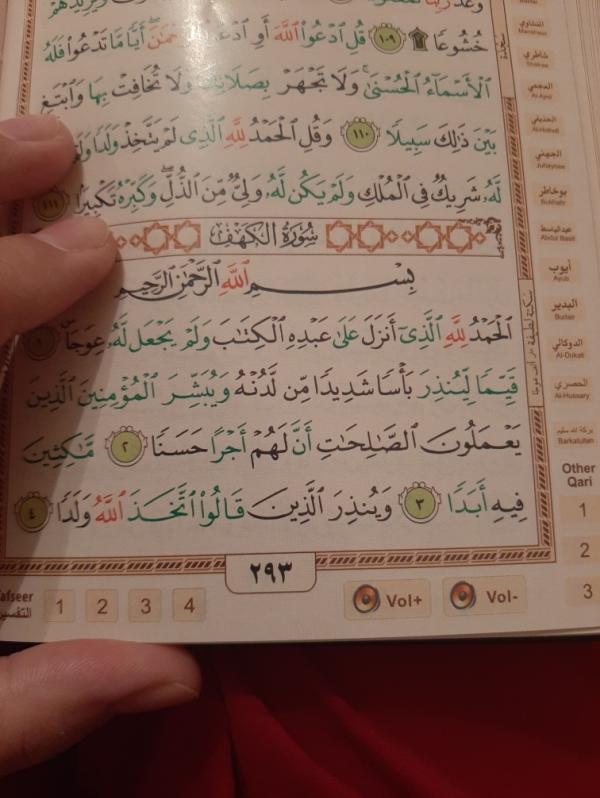 وعد ربنا
خُشُوعًا ۩ ١٠٩ قُلِ ادْعُوا۟ اللَّهَ أَوِ ادْعُوا۟ أَيًّا مَّا تَدْعُوا۟ فَلَهُ
الْأَسْمَاءُ الْحُسْنَىٰ ۚ وَلَا تَجْهَرْ بِصَلَاتِكَ وَلَا تُخَافِتْ بِهَا وَابْتَغِ
بَيْنَ ذَٰلِكَ سَبِيلًا ١١٠ وَقُلِ الْحَمْدُ لِلَّهِ الَّذِى لَمْ يَتَّخِذْ وَلَدًا وَلَمْ
لَّهُۥ شَرِيكٌ فِى الْمُلْكِ وَلَمْ يَكُن لَّهُۥ وَلِىٌّ مِّنَ الذُّلِّ ۖ وَكَبِّرْهُ تَكْبِيرًا ١١١
سُورَةُ الْكَهْفِ
بِسْمِ اللَّهِ الرَّحْمَٰنِ الرَّحِيمِ
الْحَمْدُ لِلَّهِ الَّذِىٓ أَنزَلَ عَلَىٰ عَبْدِهِ الْكِتَٰبَ وَلَمْ يَجْعَل لَّهُۥ عِوَجَا ۜ ١
قَيِّمًا لِّيُنذِرَ بَأْسًا شَدِيدًا مِّن لَّدُنْهُ وَيُبَشِّرَ الْمُؤْمِنِينَ الَّذِينَ
يَعْمَلُونَ الصَّٰلِحَٰتِ أَنَّ لَهُمْ أَجْرًا حَسَنًا ٢ مَّٰكِثِينَ
فِيهِ أَبَدًا ٣ وَيُنذِرَ الَّذِينَ قَالُوا۟ اتَّخَذَ اللَّهُ وَلَدًا ٤
٢٩٣
Tafseer
التفسير
1 2 3 4
Vol+
Vol-
سجدة
المنشاوي
شاطري
العجمي
Al-Ajmi
الحذيفي
الجهني
Juhaynee
بوخاطر
Bukhatir
عبدالباسط
Abdul Basit
أيوب
Ayub
البدير
Budair
الدوكالي
Al-Dukali
الحصري
Al-Hussary
بركة الله سليم
Barkatullah
Other
Qari
1
2
3